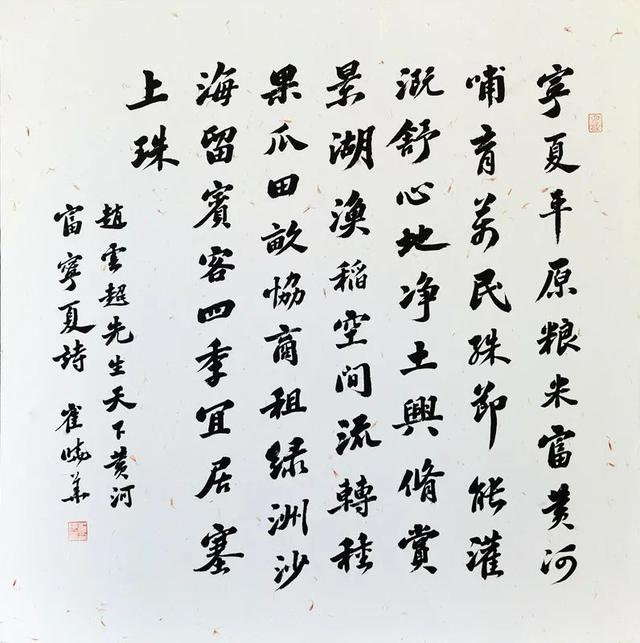 寧夏平原粮米富黄河
哺育萬民殊節能灌
溉舒心地净土興脩賞
景湖漁稻空间流轉種
果瓜田畝協商租緑洲沙
海留賓客四季宜居塞
上珠
趙雲超先生天下黄河
富寧夏詩 崔曉華